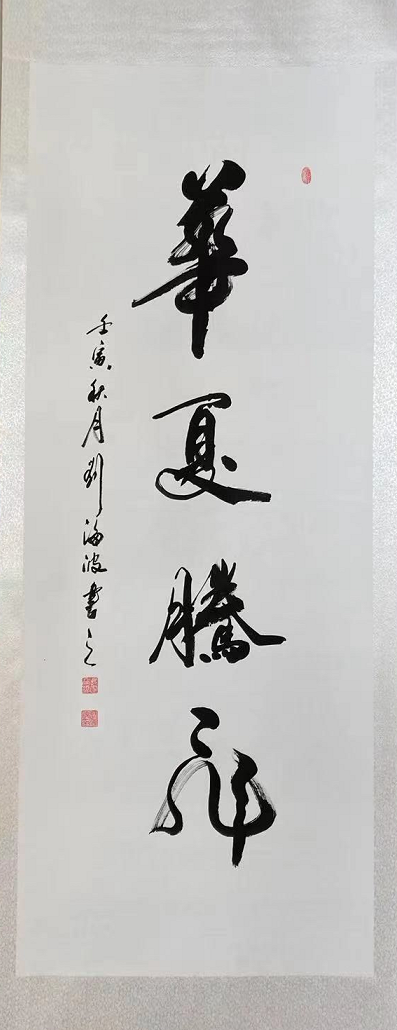 華夏騰飛
壬寅秋月劉海波書之